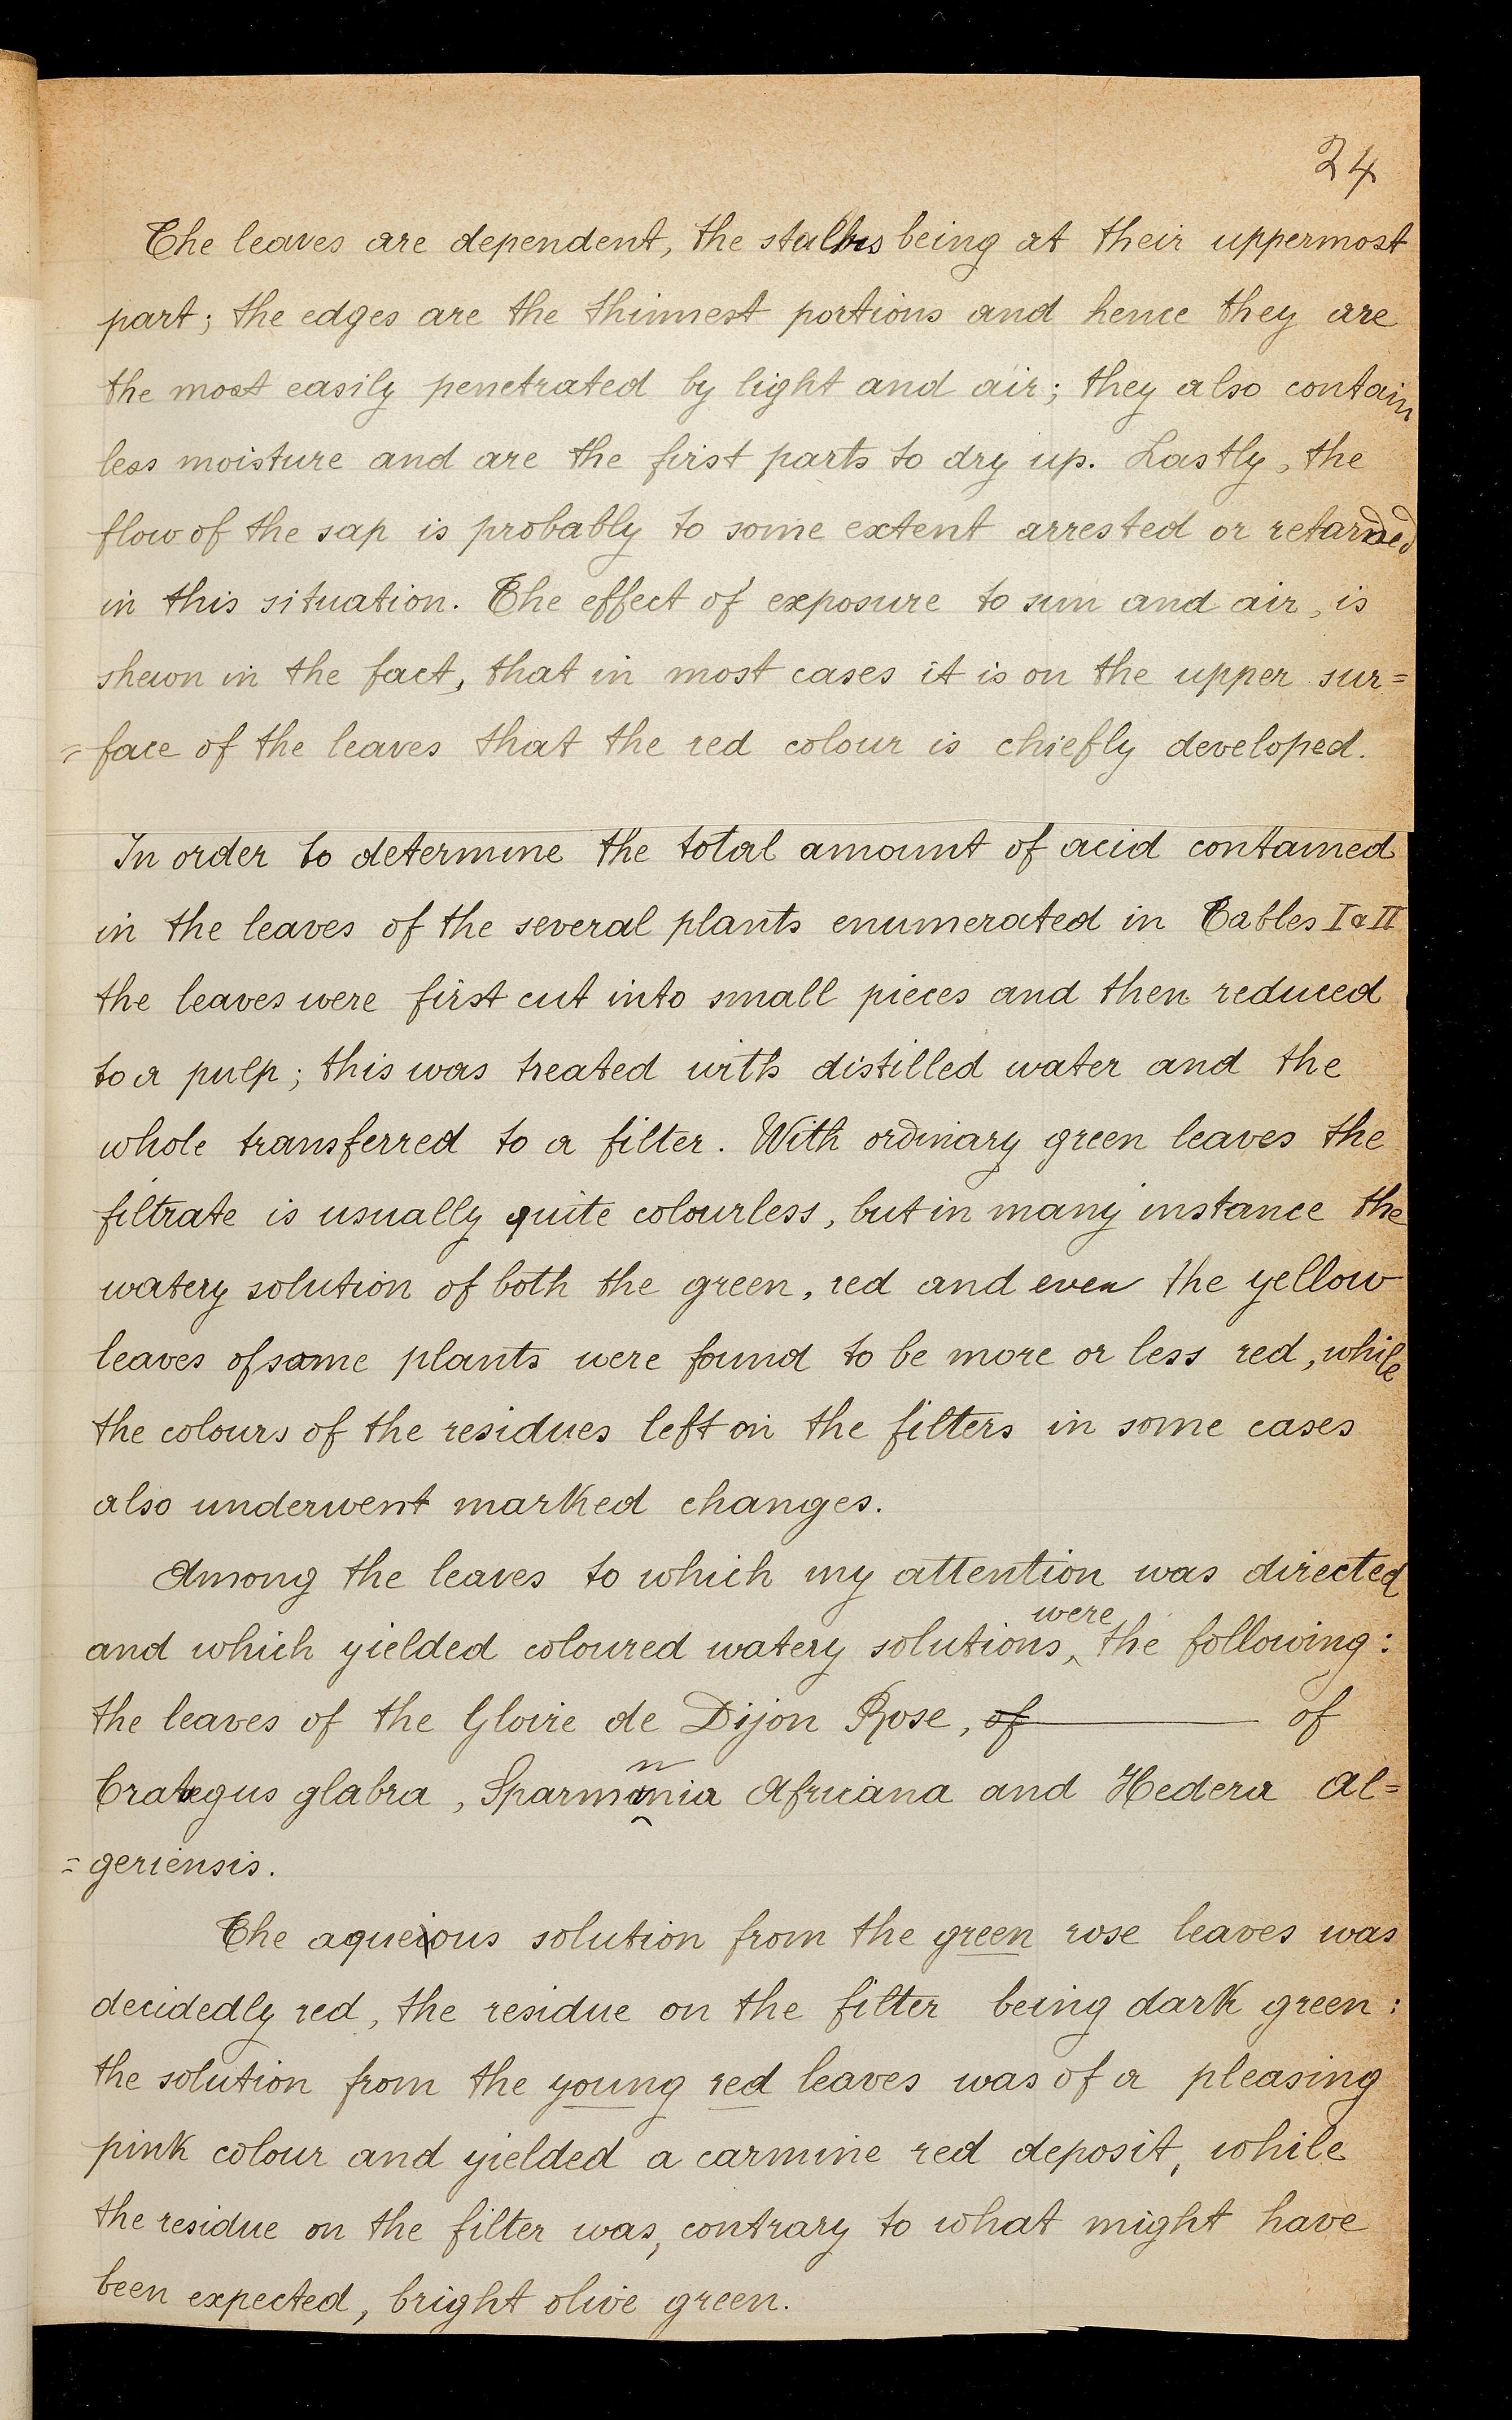 24
The leaves are dependent, the stalks being at their uppermost
part; the edges are the thinnest portions and hence they are
the most easily penetrated by light and air; they also contain
less moisture and are the first parts to dry up. Lastly, the
flow of the sap is probably to some extent arrested or retarded
in this situation. The effect of exposure to sun and air, is
shewn in the fact, that in most cases it is on the upper sur=
=face of the leaves that the red colour is chiefly developed.
In order to determine the total amount of acid contained
in the leaves of the several plants enumerated in Tables I & II
the leaves were first cut into small pieces and then reduced
to a pulp; this was treated with distilled water and the
whole transferred to a filter. With ordinary green leaves the
filtrate is usually quite colourless, but in many instance the
watery solution of both the green, red and even the yellow
leaves of some plants were found to be more or less red, while
the colours of the residues left on the filters in some cases
also underwent marked changes.
Among the leaves to which my attention was directed
were
and which yielded coloured watery solutions, the following:
the leaves of the Gloire de Dijon Rose, of of
Crategus glabra, Sparmannia Africana and Hedera Al=
=geriensis.
The aqueous solution from the green rose leaves was
decidedly red, the residue on the filter being dark green:
the solution from the young red leaves was of a pleasing
pink colour and yielded a carmine red deposit, while
the residue on the filter was, contrary to what might have
been expected, bright olive green.